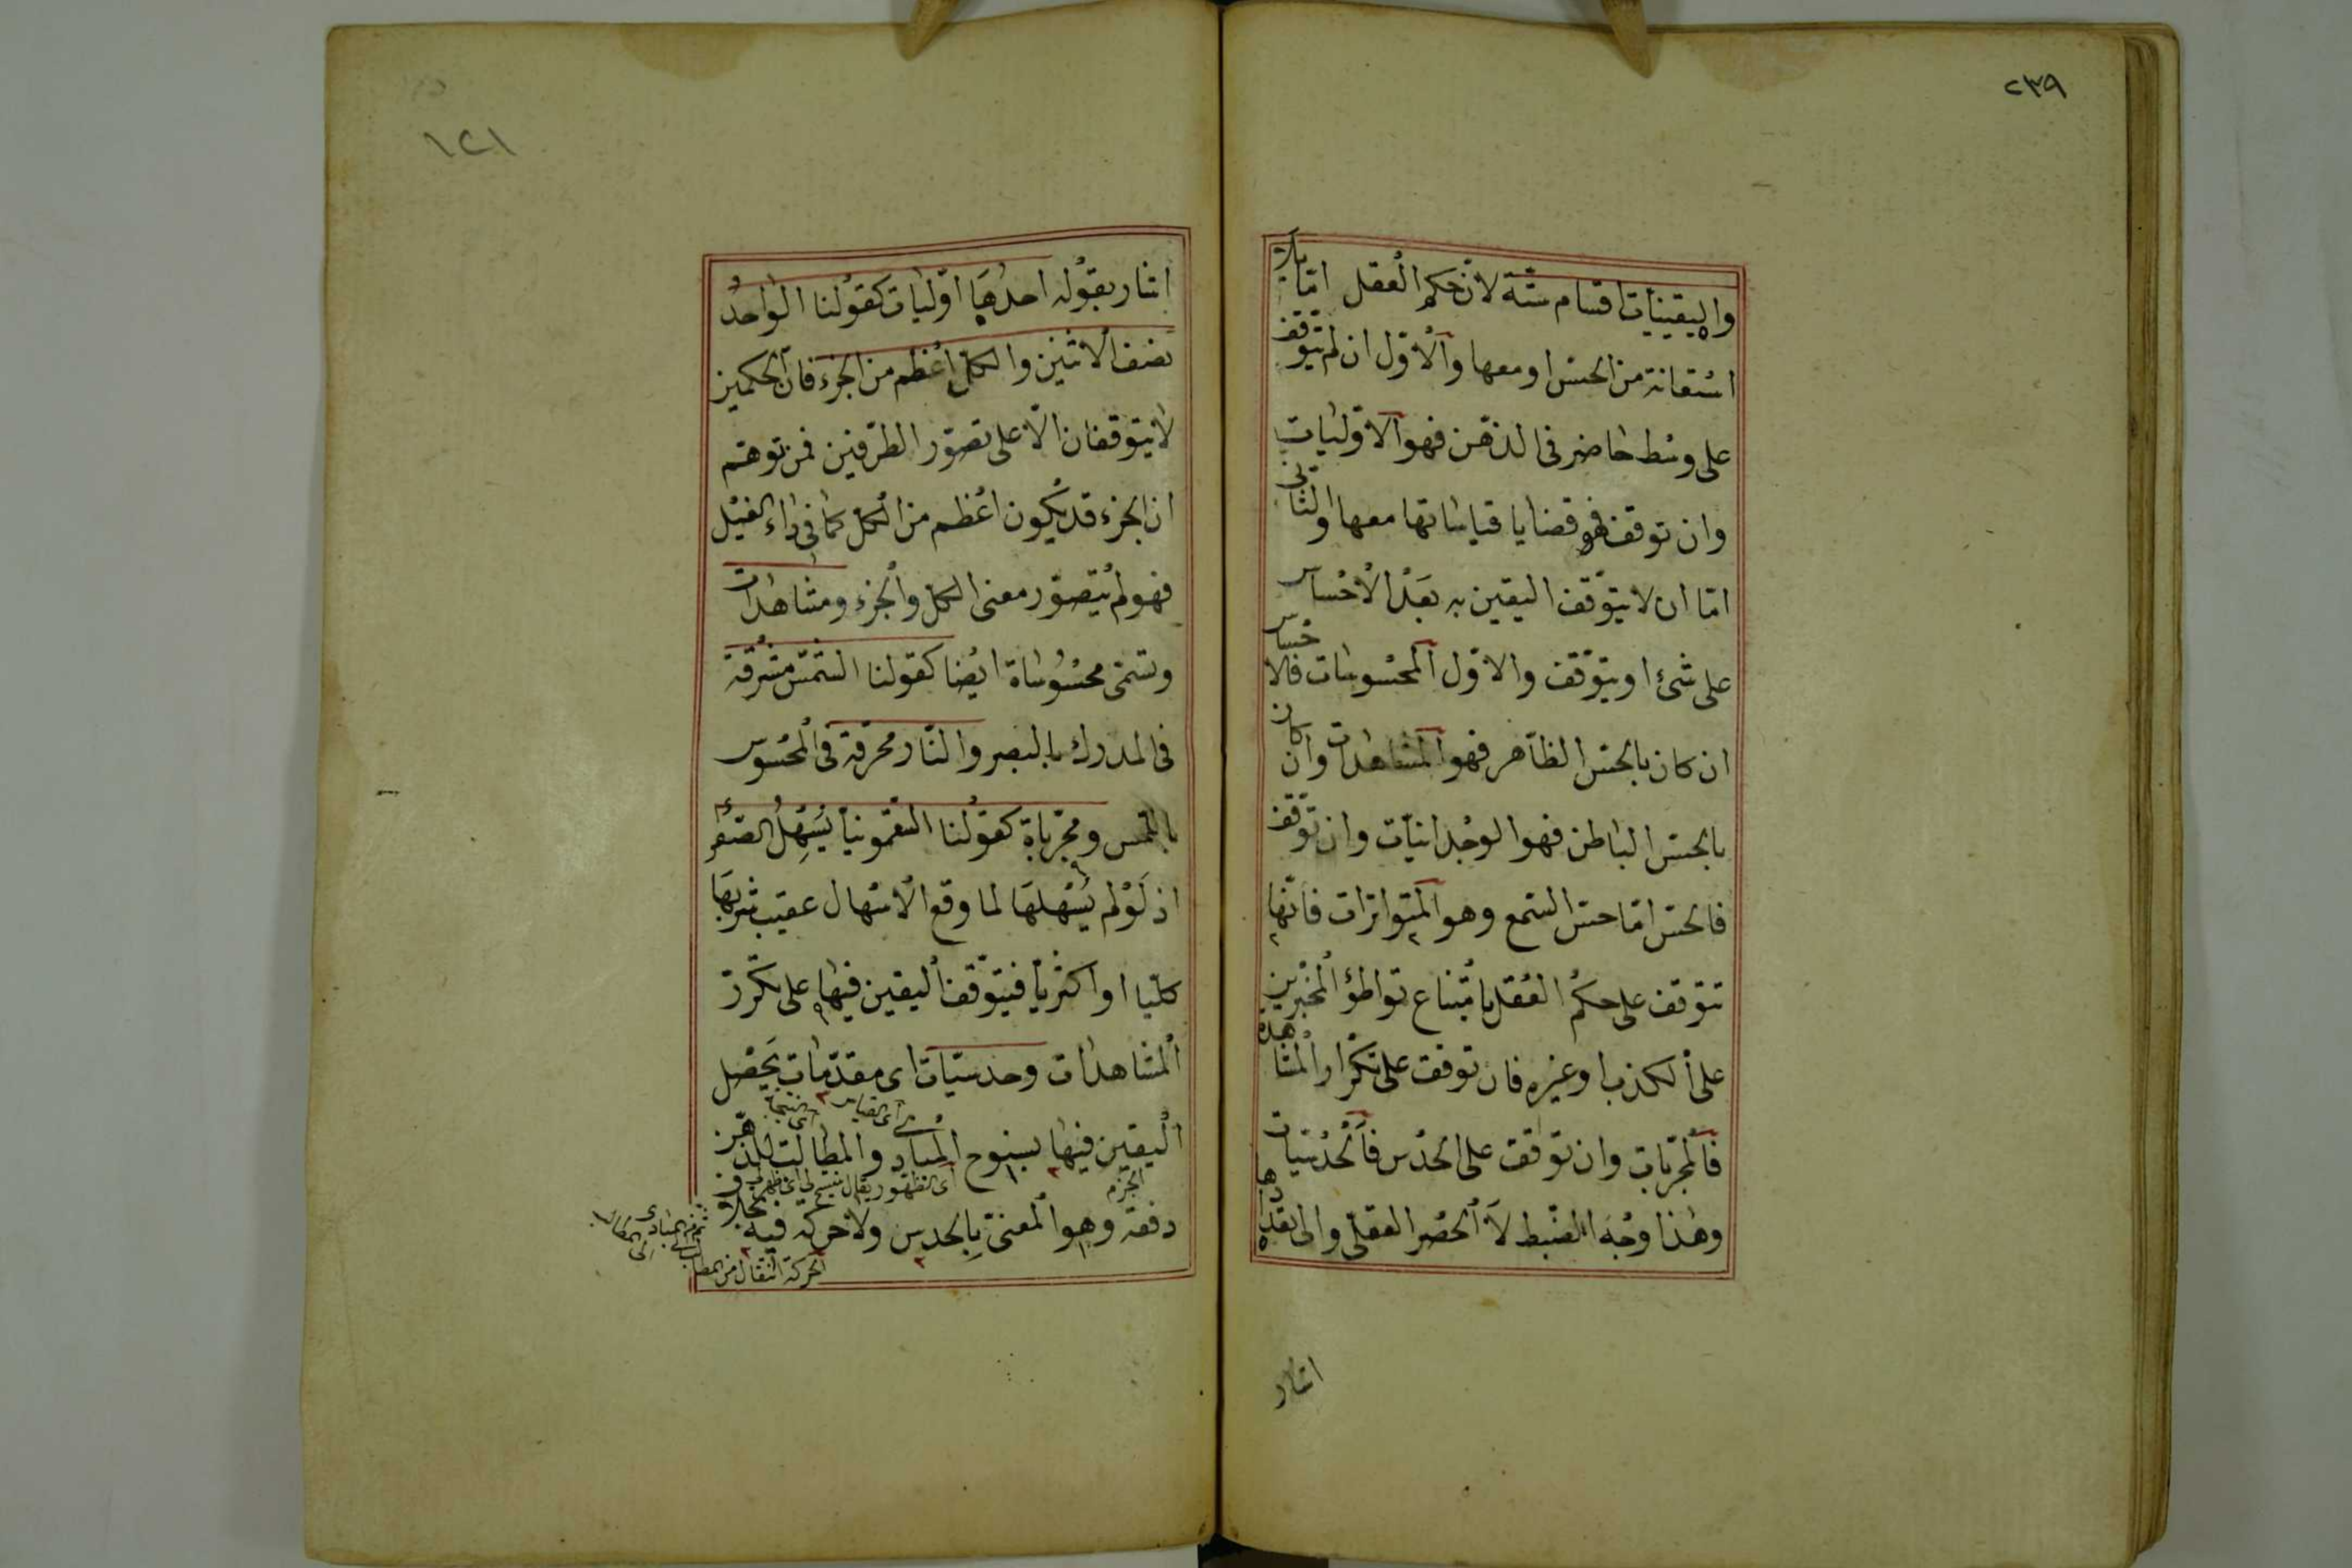 ٢٣٩
واليقينيات اقسام ستة لان حكم العقل اما بلا
استعانة من الحس او معها والاول ان لم يتوقف
على وسط حاضر فى الذهن فهو الاوليات
وان توقف فهو قضايا قياساتها معها والثانى
اما ان لا يتوقف اليقين به بعد الاحساس
على شئ او يتوقف والاول المحسوسات فالاحساس
ان كان بالحس الظاهر فهو المشاهدات وان كان
بالحس الباطن فهو الوجدانيات وان توقف
فالحس اما حس السمع وهو المتواترات فانها
تتوقف على حكم العقل بامتناع تواطؤ المخبرين
على الكذب او غيره فان توقفت على تكرار المشاهدة
فالمجربات وان توقفت على الحدس فالحدسيات
وهذا وجه الضبط لا الحصر العقلى والى تعدادها
اشار
١٢١
اشار بقوله احدها اوليات كقولنا الواحد
نصف الاثنين والكل اعظم من الجزء فان الحكمين
لا يتوقفان الا على تصور الطرفين فمن توهم
ان الجزء قد يكون اعظم من الكل كما فى داء الفيل
فهو لم يتصور معنى الكل والجزء ومشاهدات
وتسمى محسوساة ايضا كقولنا الشمس مشرقة
فى المدرك بالبصر والنار محرقة فى المحسوس
باللمس ومجرباة كقولنا السقمونيا يسهل الصفراء
اذ لو لم يسهلها لما وقع الاسهال عقيب شربها
كليا او اكثريا فيتوقف اليقين فيها على تكرر
المشاهدات وحدسيات اى مقدمات يحصل
اى القياس اى النتيجة
اليقين فيها بسنوح المبادى والمطالب للذهن
الجزم اى الظهور يقال سنح لى اى ظهر
دفعة وهو المعنى بالحدس ولا حركة فيه بخلاف
الحركة انتقال من المطالب
ثم من المبادى
الى المطالب